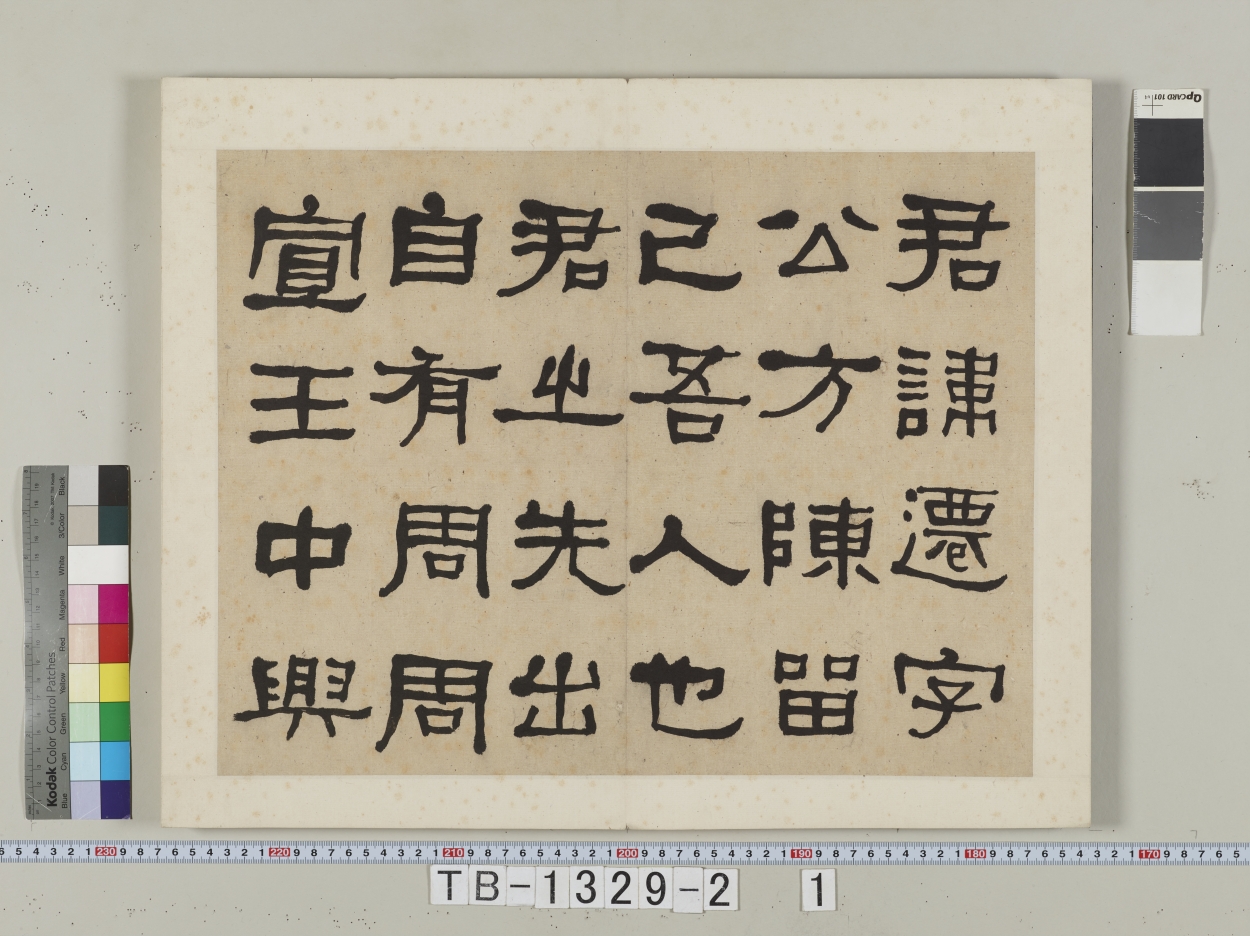 君諱遷字
公方陳留
己吾人也
君之先出
自有周周
宣王中興
QpCARD 101
Kodak Color Control Patches
Blue Cyan Green Yellow Red Magenta White 3/Color Black
6 5 4 3 2 1 230 9 8 7 6 5 4 3 2 1 220 9 8 7 6 5 4 3 2 1 210 9 8 7 6 5 4 3 2 1 200 9 8 7 6 5 4 3 2 1 190 9 8 7 6 5 4 3 2 1 180 9 8 7 6 5 4 3 2 1 170 9 8 7 6 5
TB-1329-2 1